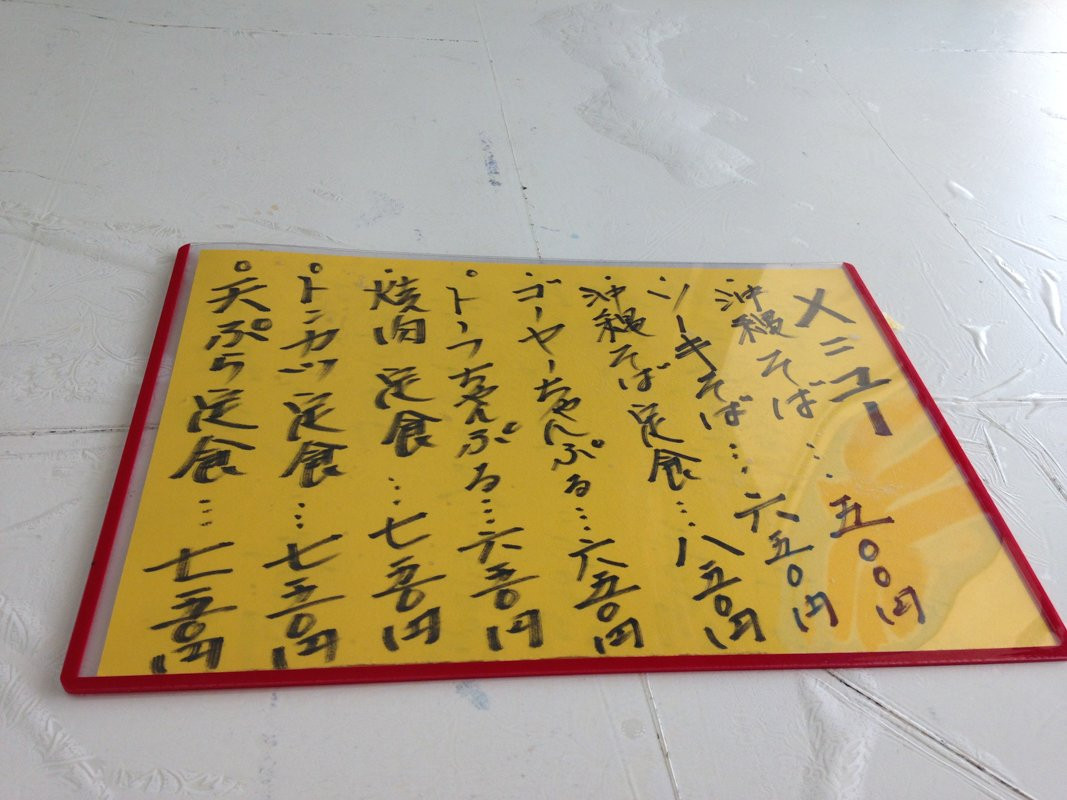 メニュー
・沖縄そば…五〇〇円
・ソーキそば…六五〇円
・沖縄そば定食…八五〇円
・ゴーヤーちゃんぷる…六五〇円
・トーフちゃんぷる…六五〇円
・焼肉定食…七五〇円
・トンカツ定食…七五〇円
・天ぷら定食…七五〇円